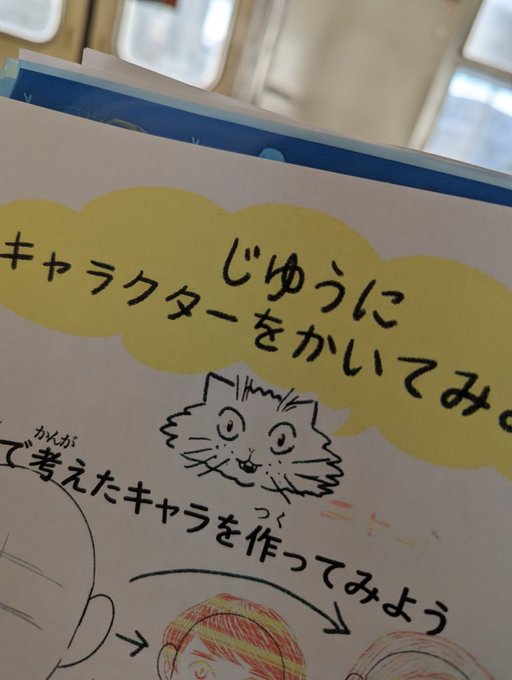 じゆうに
キャラクターをかいてみ
かんが
で考えたキャラを作ってみよう
つく
ニャー